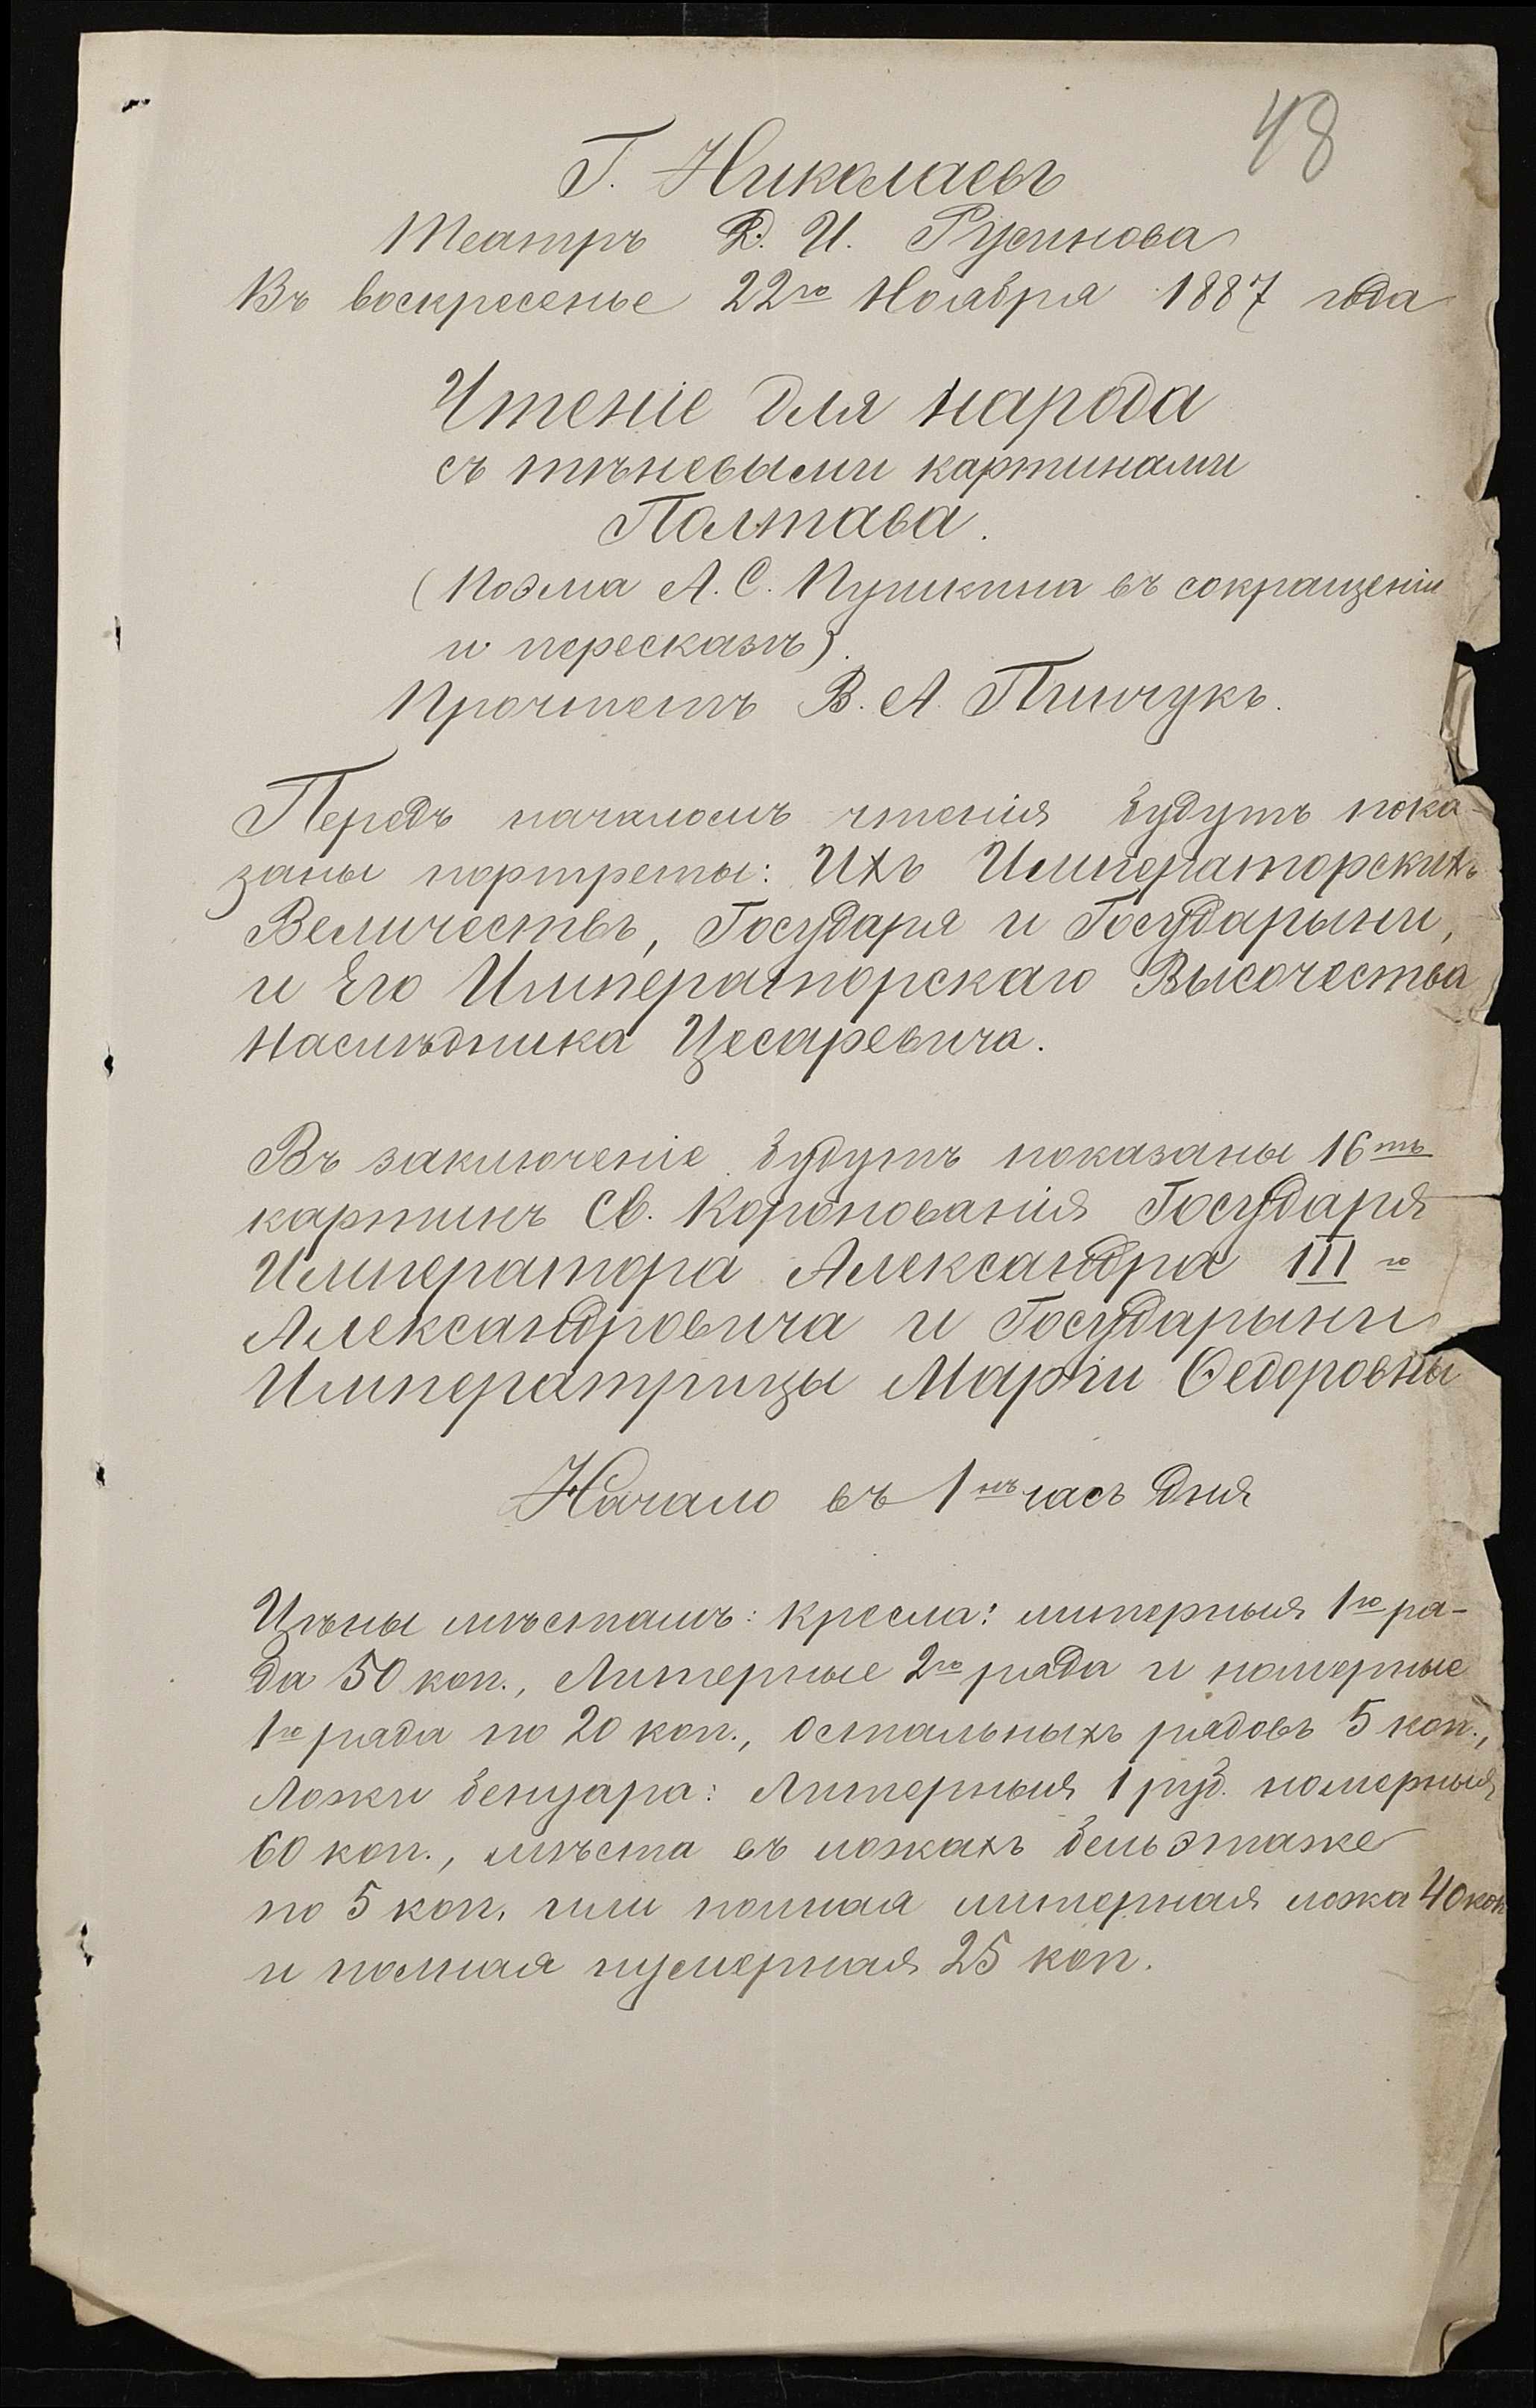 48
Г. Николаевъ
Театръ Я. И. Русинова
Въ воскресенье 22го Ноября 1887 года
Чтеніе для народа
съ тѣневыми картинами
Полтава.
(Поэма А. С. Пушкина въ сокращеніи
и пересказѣ).
Прочтетъ В. А. Пинчукъ.
Передъ началомъ чтенія будутъ пока-
заны портреты: Ихъ Императорскихъ
Величествъ, Государя и Государыни,
и Его Императорскаго Высочества
Наслѣдника Цесаревича.
Въ заключеніе будутъ показаны 16ть
картинъ Св. Коронованія Государя
Императора Александра III го
Александровича и Государыни
Императрицы Маріи Ѳедоровны
Начало въ 1нъ часъ дня
Цѣны мѣстамъ: кресла: литерныя 1го ря-
да 50 коп., Литерные 2го ряда и номерные
1го ряда по 20 коп., Остальныхъ рядовъ 5 коп.,
Ложи бенуара: Литерныя 1 руб. номерныя
60 коп., мѣста въ ложахъ бельэтаже
по 5 коп. или полная литерная ложа 40 коп
и полная нумерная 25 коп.